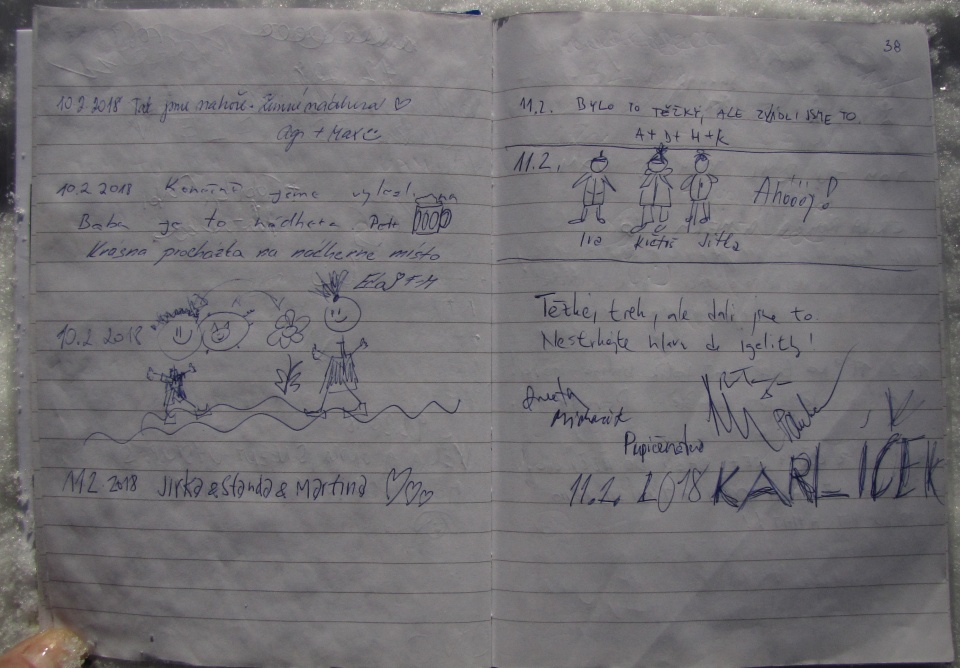 10.2.2018 Tak jsme nahoře. Zimní nádhera
Agi + Max
10.2 2018 Konečně jsme vylezl na
Baba je to nádhera Petr
Krásná procházka na nádherné místo
10.2 2018
11.2 2018 Jirka & Standa & Martina
38
11.2. BYLO TO TĚŽKÝ, ALE ZVÁDLI JSME TO.
A + D + H + K
11.2.
Ahóóój!
Jitka
Těžkej trek, ale dali jsme to
Nestrkejte hlavu do igelitky!
11.2. 2018 KARLÍČEK